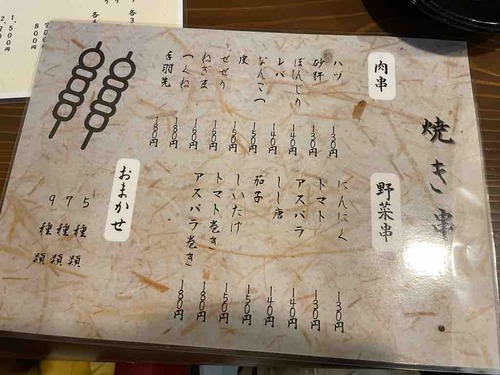 焼き串
肉串
ハツ 130円
砂肝 130円
ぼんじり 140円
レバー 140円
なんこつ 140円
皮 150円
せせり 150円
ねぎま 180円
つくね 180円
手羽先 180円
野菜串
にんにく 130円
トマト 130円
アスパラ 140円
しし唐 140円
茄子 150円
しいたけ 150円
トマト巻き 180円
アスパラ巻き 180円
おまかせ
5種類
7種類
9種類
800円
1,500円